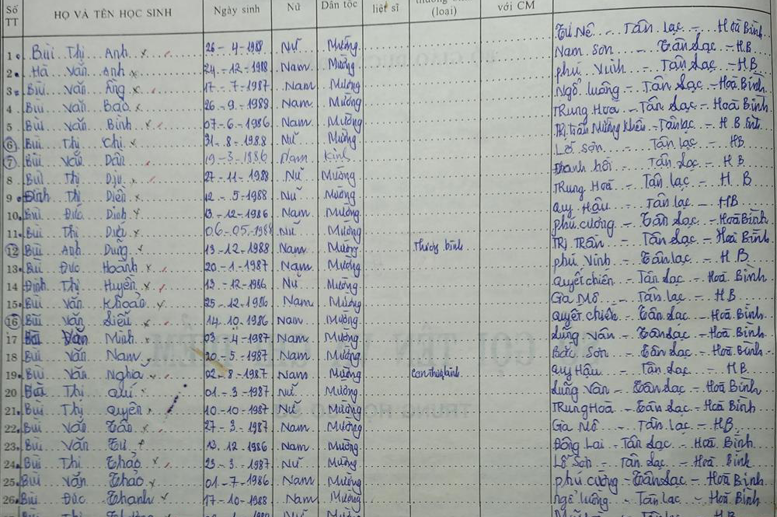 Số TT HỌ VÀ TÊN HỌC SINH Ngày sinh Nữ Dân tộc liệt sĩ (loại) với CM
1 Bùi Thị Anh 26-4-1988 Nữ Mường Tử Nê - Tân Lạc - Hoà Bình
2 Hà Văn Anh 24-12-1988 Nam Mường Nam Sơn - Tân Lạc - H.B
3 Bùi Văn 17-7-1987 Nam Mường Phú Vinh - Tân Lạc - H.B
4 Bùi Văn Bảo 26-9-1989 Nam Mường Ngổ Luông - Tân Lạc - Hoà Bình
5 Bùi Văn Bình 07-6-1986 Nam Mường Trung Hoà - Tân Lạc - Hoà Bình
6 Bùi Thị Chi 31-8-1988 Nữ Mường Thị trấn Mường Khến - Tân Lạc - H.B
7 Bùi Văn 19-3-1986 Nam Kinh Lỗ Sơn - Tân Lạc - HB
8 Bùi Thị Dịu 27-11-1988 Nữ Mường Thanh Hối - Tân Lạc - H.B
9 Đinh Thị 12-5-1988 Nữ Mường Trung Hoà - Tân Lạc - H.B
10 Bùi Đức 13-12-1986 Nam Mường Quy Hậu - Tân Lạc - HB
11 Bùi Thị 06-05-1988 Nữ Mường Phú Cường - Tân Lạc - Hoà Bình
12 Bùi Anh Dũng 13-12-1988 Nam Mường Thương binh Thị Trấn - Tân Lạc - Hoà Bình
13 Bùi Đức Hoành 20-1-1987 Nam Mường Phú Vinh - Tân Lạc - H.B
14 Đinh Thị Huyền 13-12-1986 Nữ Mường Quyết Chiến - Tân Lạc - Hoà Bình
15 Bùi Văn Khoao 25-12-1986 Nam Mường Gia Mô - Tân Lạc - H.B
16 Bùi Văn 14-10-1986 Nam Mường Quyết Chiến - Tân Lạc - Hoà Bình
17 Bùi Văn Minh 03-4-1987 Nam Mường Lũng Vân - Tân Lạc - Hoà Bình
18 Bùi Văn Nam 20-5-1987 Nam Mường Bắc Sơn - Tân Lạc - Hoà Bình
19 Bùi Văn Nghĩa 02-8-1987 Nam Mường Quy Hậu - Tân Lạc - H.B
20 Bùi Thị Quí 01-3-1987 Nữ Mường Lũng Vân - Tân Lạc - Hoà Bình
21 Bùi Thị Quyên 10-10-1987 Nữ Mường Trung Hoà - Tân Lạc - Hoà Bình
22 Bùi Văn Tân 27-3-1987 Nam Mường Gia Mô - Tân Lạc - H.B
23 Bùi Văn Tư 12.12.1986 Nam Mường Đông Lai - Tân Lạc - Hoà Bình
24 Bùi Thị Thảo 23-3-1987 Nữ Mường Lỗ Sơn - Tân Lạc - Hoà Bình
25 Bùi Văn Thao 01-7-1986 Nam Mường Phú Cường - Tân Lạc - Hoà Bình
26 Bùi Đức Thanh 17-10-1988 Nam Mường Ngổ Luông - Tân Lạc - Hoà Bình